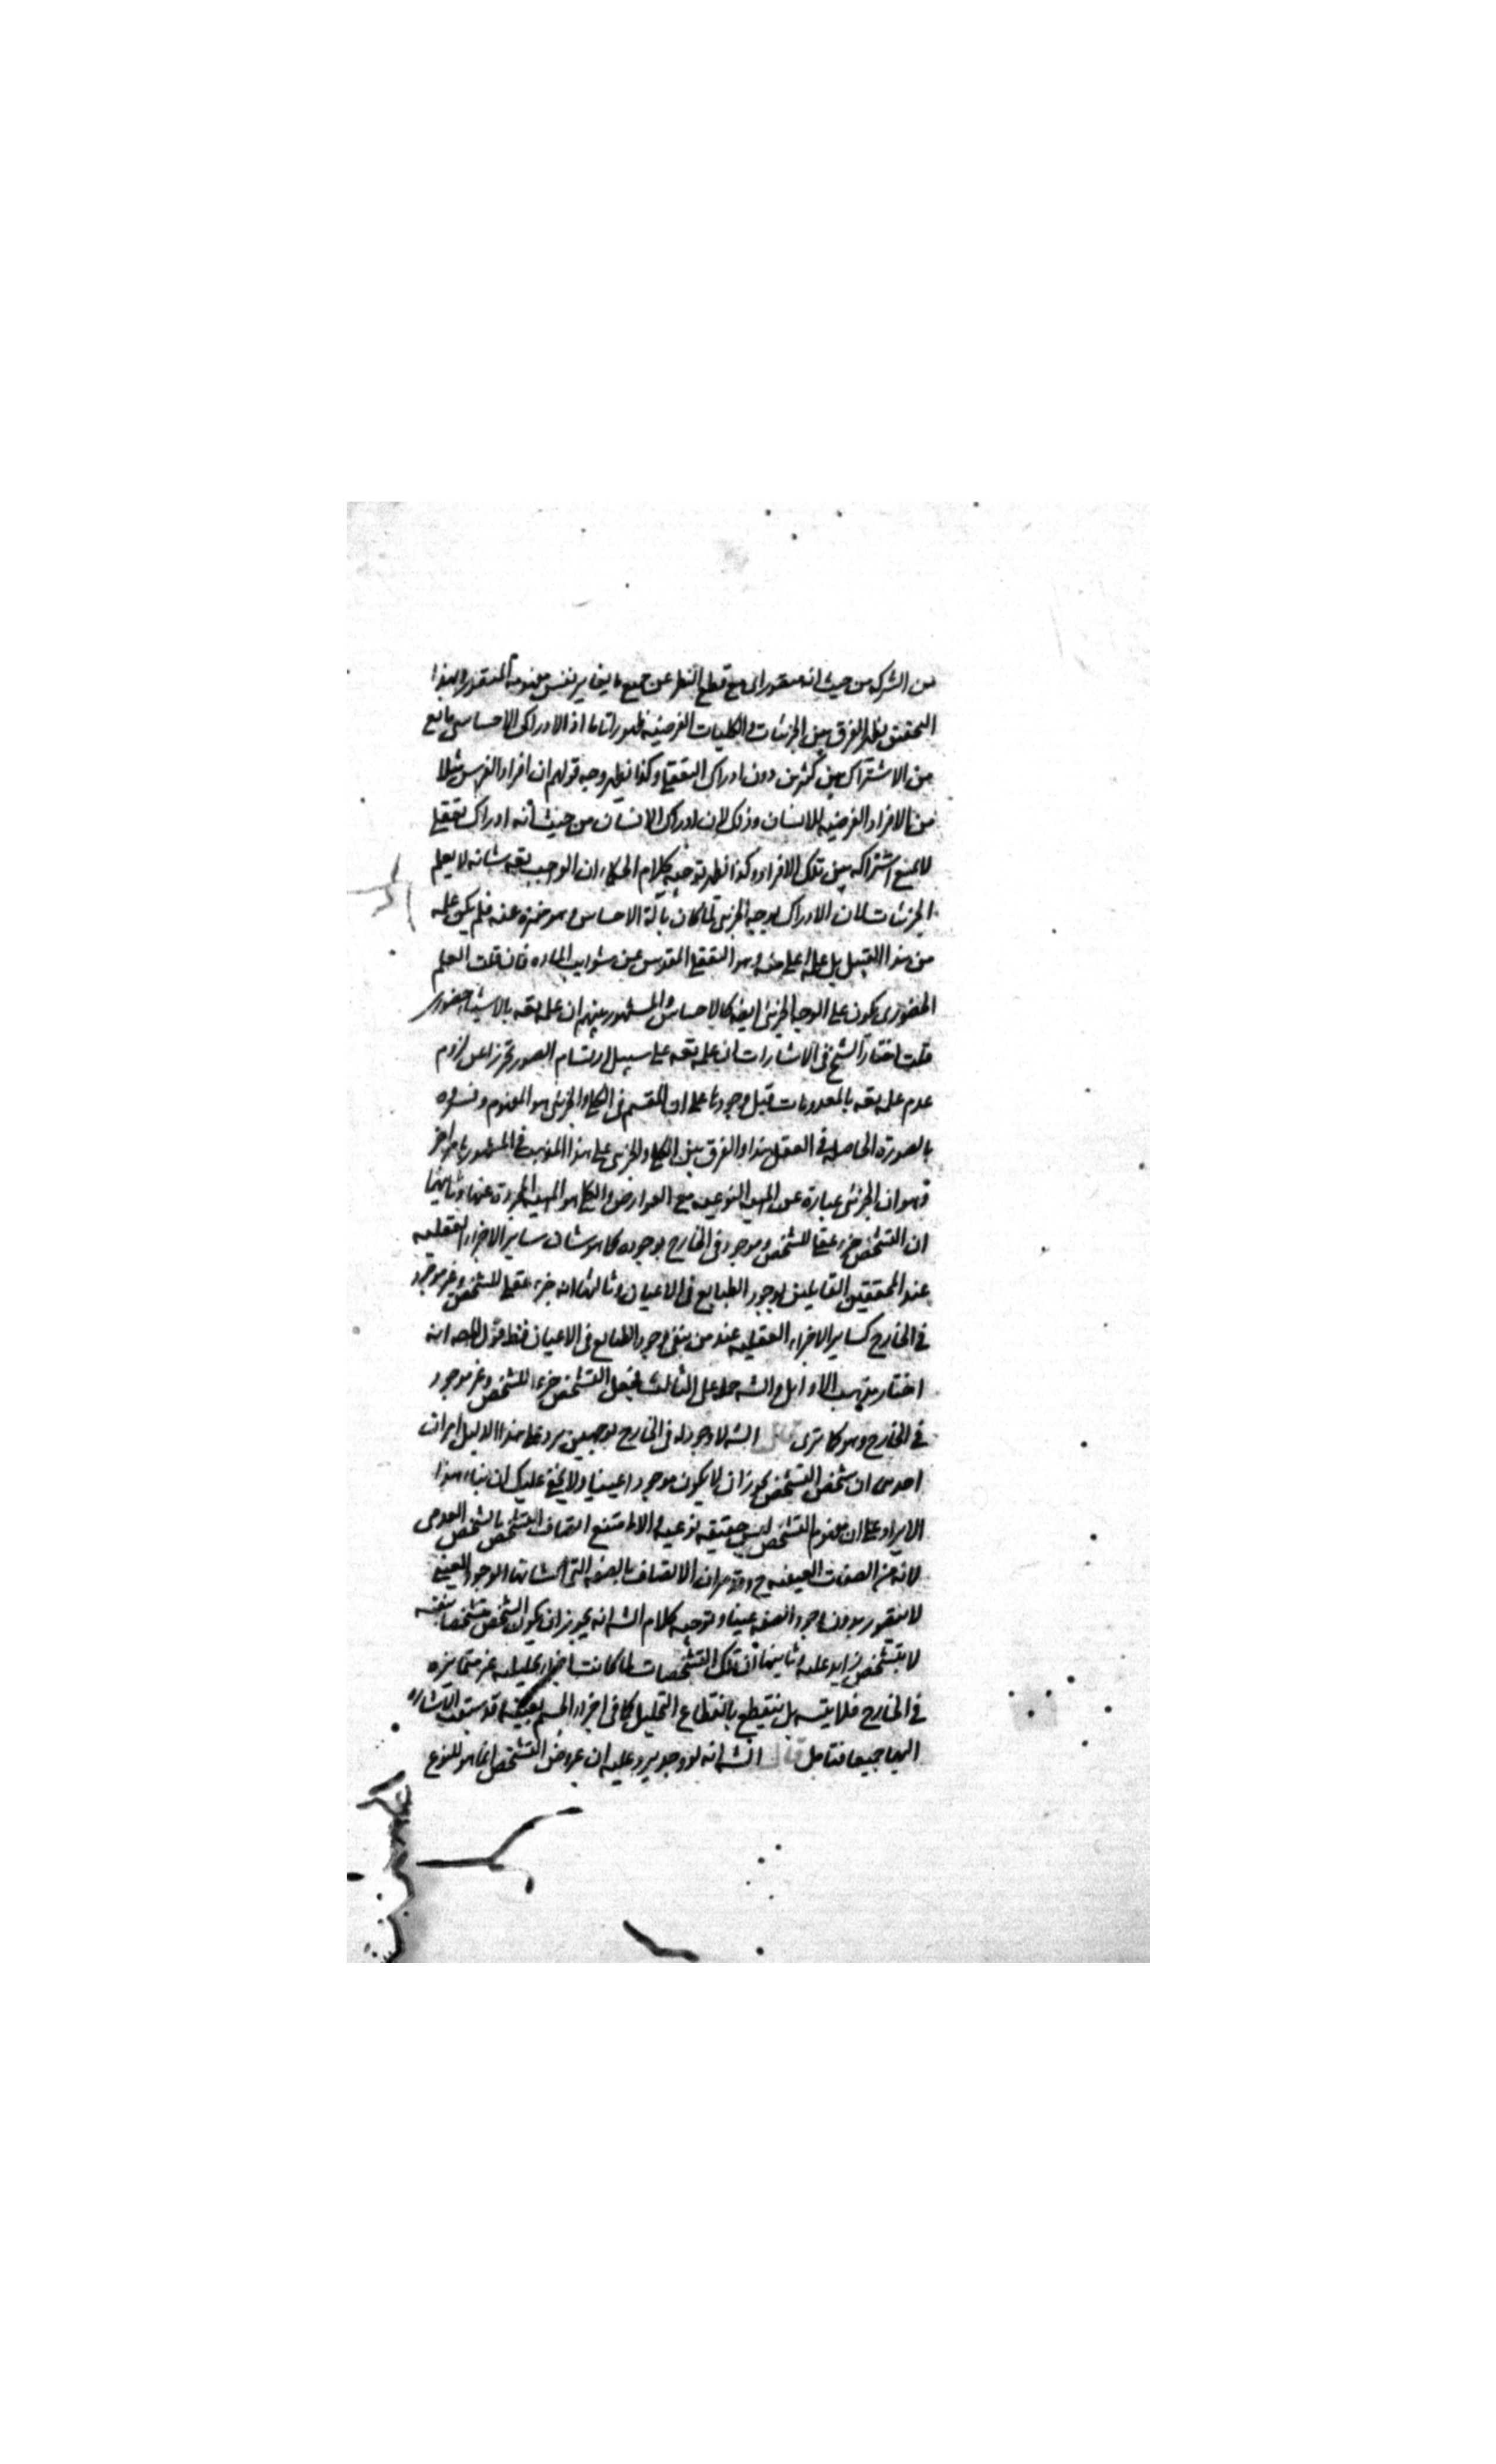 من الشركة من حيث انه متصور اى مع قطع النظر عن جميع ما يغاير نفس مفهومه المتصور وبهذا
التحقيق يظهر الفرق بين الجزئيات والكليات الفرضيه ظهورا تاما اذ الادراك الاحساسى مانع
من الاشتراك بين كثيرين دون ادراك التعقلى وكذا يظهر وجه قولهم ان افراد الفرس مثلا
من الافراد الفرضيه للانسان وذلك لان ادراك الانسان من حيث انه ادراك تعقلى
لا يمنع اشتراكه بين تلك الافراد وكذا يظهر توجيه كلام الحكماء ان الواجب تعه شانه لا يعلم
الجزئيات لان الادراك بوجه الجزئى لما كان بآلة الاحساس وهو منزه عنه فلم يكن علمه
من هذا القبيل بل علمه اعلى منه وهو التعقلى المقدس عن شوايب الماده فان قلت العلم
الحضورى يكون على الوجه الجزئى ايضه كالاحساس والمشهور بينهم ان علمه تعه بالاشياء حضورى
قلت اختار الشيخ فى الاشارات ان علمه تعه على سبيل ارتسام الصور تحرزا عن لزوم
عدم علمه تعه بالمعدومات قبل وجودها على ان المقسم فى الكلى والجزئى هو المفهوم وفسروه
بالصورة الحاصله فى العقل هذا والفرق بين الكلى والجزئى على هذا المذهب فى المشهور بامر اخر
وهو ان الجزئى عبارة عن المهيه النوعيه مع العوارض والكلى هو المهيه المجردة عنها وثانيهما
ان التشخص جزء عقلى للشخص وموجود فى الخارج بوجوده كما هو شان ساير الاجزاء العقليه
عند المحققين القايلين بوجود الطبايع فى الاعيان وثالثها انه جزء عقلى للشخص وغير موجود
فى الخارج كساير الاجزاء العقليه عند من ينفى وجود الطبايع فى الاعيان فنط قول المصه انه
اختار مذهب الاوايل والشه حمله على الثالث فجعل التشخص جزءا للشخص وغير موجود
فى الخارج وهو كما ترى قال الشه لا وجود له فى الخارج لوجهين يرد على هذا الدليل ايرادان
احدهما ان تشخص التشخص يجوز ان لا يكون موجودا عينيا ولا يخفى عليك ان بناء هذا
الايراد على ان مفهوم التشخص ليس حقيقه نوعيه والا امتنع اتصاف التشخص بالتشخص العدمى
لانه من الصفات العينيه ح وقد مر ان الاتصاف بالصفه التى من شانها الوجود العينى
لا يتصور بدون وجود الصفه عينا وتوجيه كلام الشه انه يجوز ان يكون التشخص متشخصا بنفسه
لا بتشخص زايد عليه وثانيهما ان تلك التشخصات لما كانت اجزاء تحليليه غير متمايزه
فى الخارج فلا يتسه بل ينقطع بانقطاع التحليل كما فى اجزاء الجسم بعينه وقد سبقت الاشاره
اليهما جميعا فتامل قال الشه انه لو وجد يرد عليه ان عروض التشخص انما هو للنوع